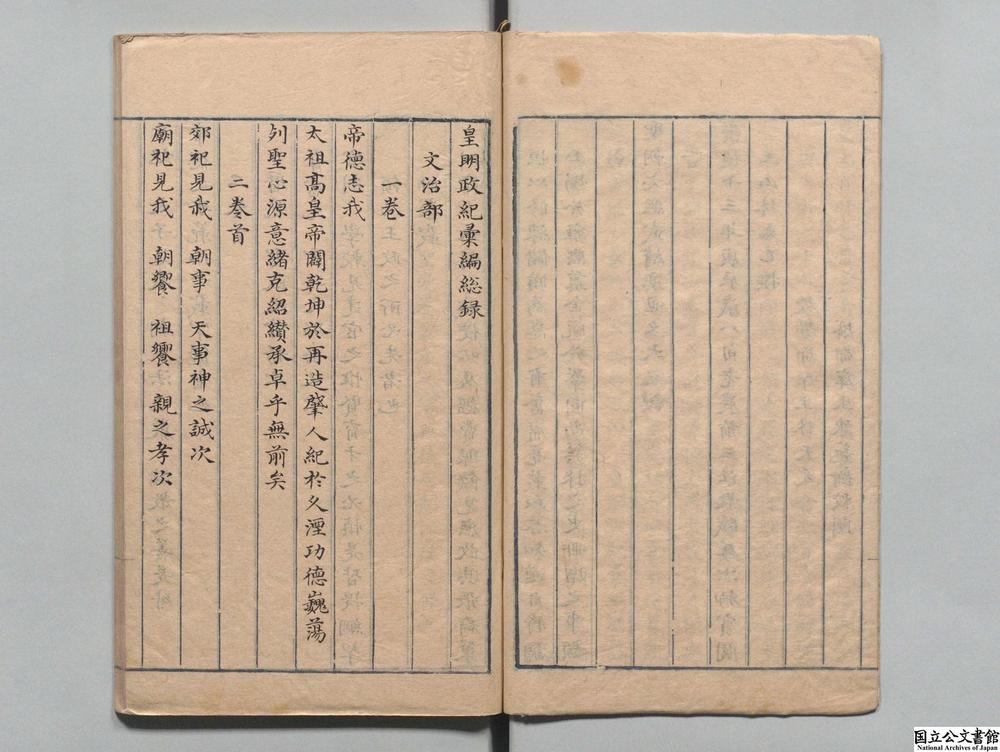 皇明政紀彙編総録
文治部
一卷
帝德志我
太祖高皇帝闢乾坤於再造肇人紀於久湮功德巍蕩
列聖心源意緒克紹纘承卓乎無前矣
二卷首
郊祀見我　朝事　天事神之誠次
廟祀見我　朝饗　祖饗　親之孝次
国立公文書館
National Archives of Japan